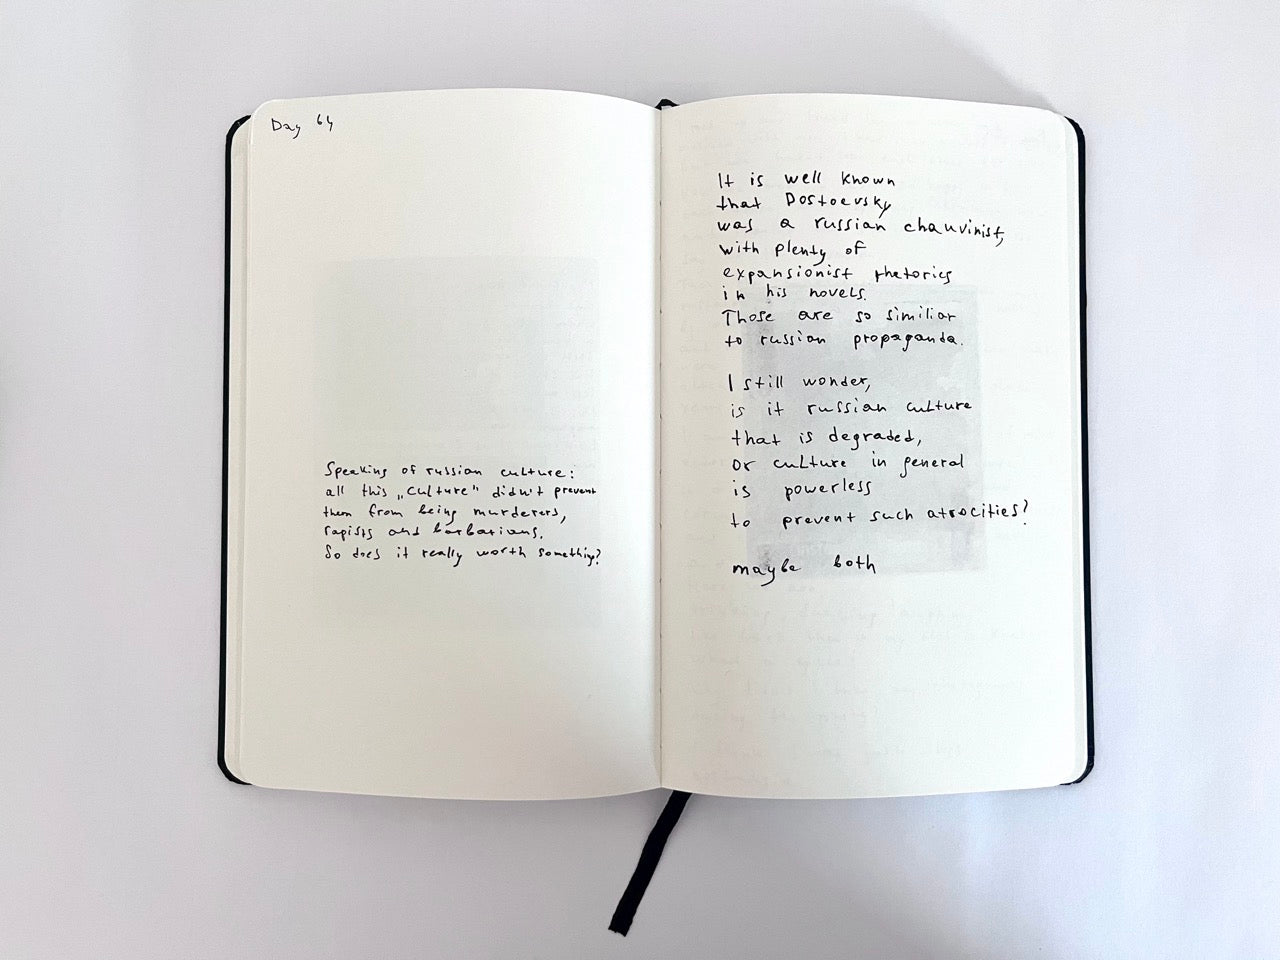 Day 64
Speaking of russian culture:
all this „culture" didn't prevent
them from being murderers,
rapists and barbarians.
So does it really worth something?
It is well known
that Dostoevsky
was a russian chauvinist,
with plenty of
expansionist rhetorics
in his novels.
Those are so similiar
to russian propaganda.
I still wonder,
is it russian culture
that is degraded,
or culture in general
is powerless
to prevent such atrocities?
maybe both